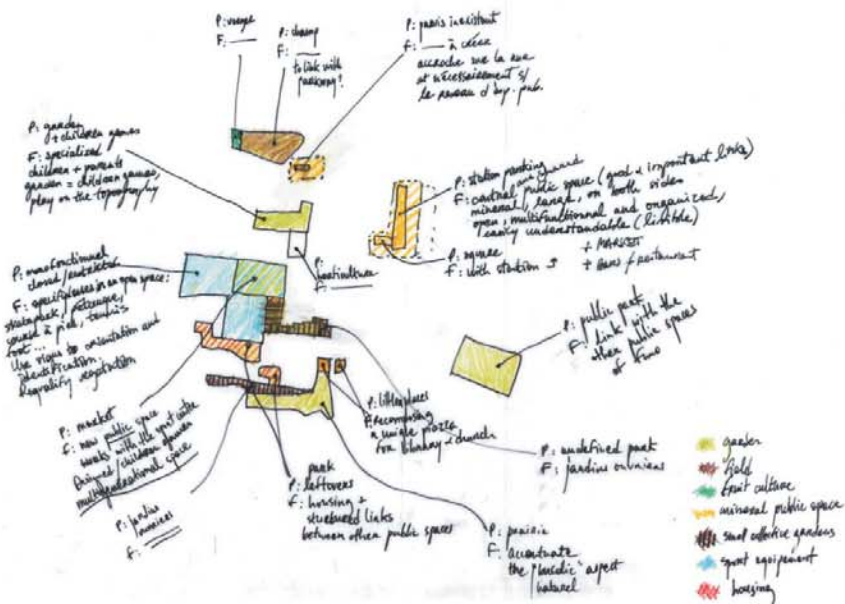 P: verger
F: ——
P: champ
F: ——
to link with
parking?
P: parvis inexistant
F: —— à créer
accroche sur la rue
et nécessairement s/
le niveau d'esp. pub.
P: garden
+ children games
F: specialized
children + parents
garden = children games,
play on the topography
P: station parking
F: central public space (good & important links)
mineral, large, on both sides
open, multifunctionnal and organized,
easily understandable (lisible)
+ MARKET
+ bars / restaurant
P: square
F: with station
P:
horticulture
F: ——
P: monofunctionnal
closed
F: specific uses in an open space:
skatepark, pétanque,
course à pied, tennis
foot...
Use signs to orientation and
identification.
Requalify vegetation
P: public park
F: link with the
other public spaces
of
P: market
F: new public space
works with the sport centre
/ children garden
multigenerational space
P: little places
F: recomposing
a unique piazza
for library & church
P: undefined park
F: jardins ouvriers
P: jardins
ouvriers
F: ——
park
P: leftovers
F: housing +
structured links
between other public spaces
P: prairie
F: accentuate
the "bucolic" aspect
naturel
garden
field
fruit culture
mineral public space
small collective gardens
sport equipement
housing